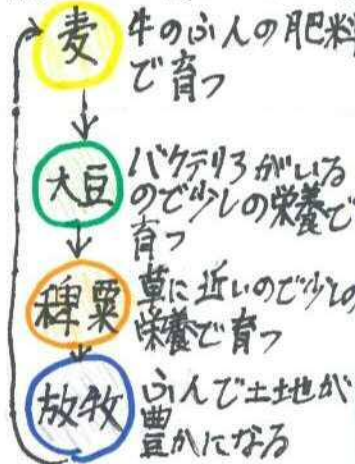 麦
牛のふんの肥料
で育つ
大豆
バクテリアがいる
ので少しの栄養で
育つ
稗粟
草に近いので少しの
栄養で育つ
放牧
ふんで土地が
豊かになる